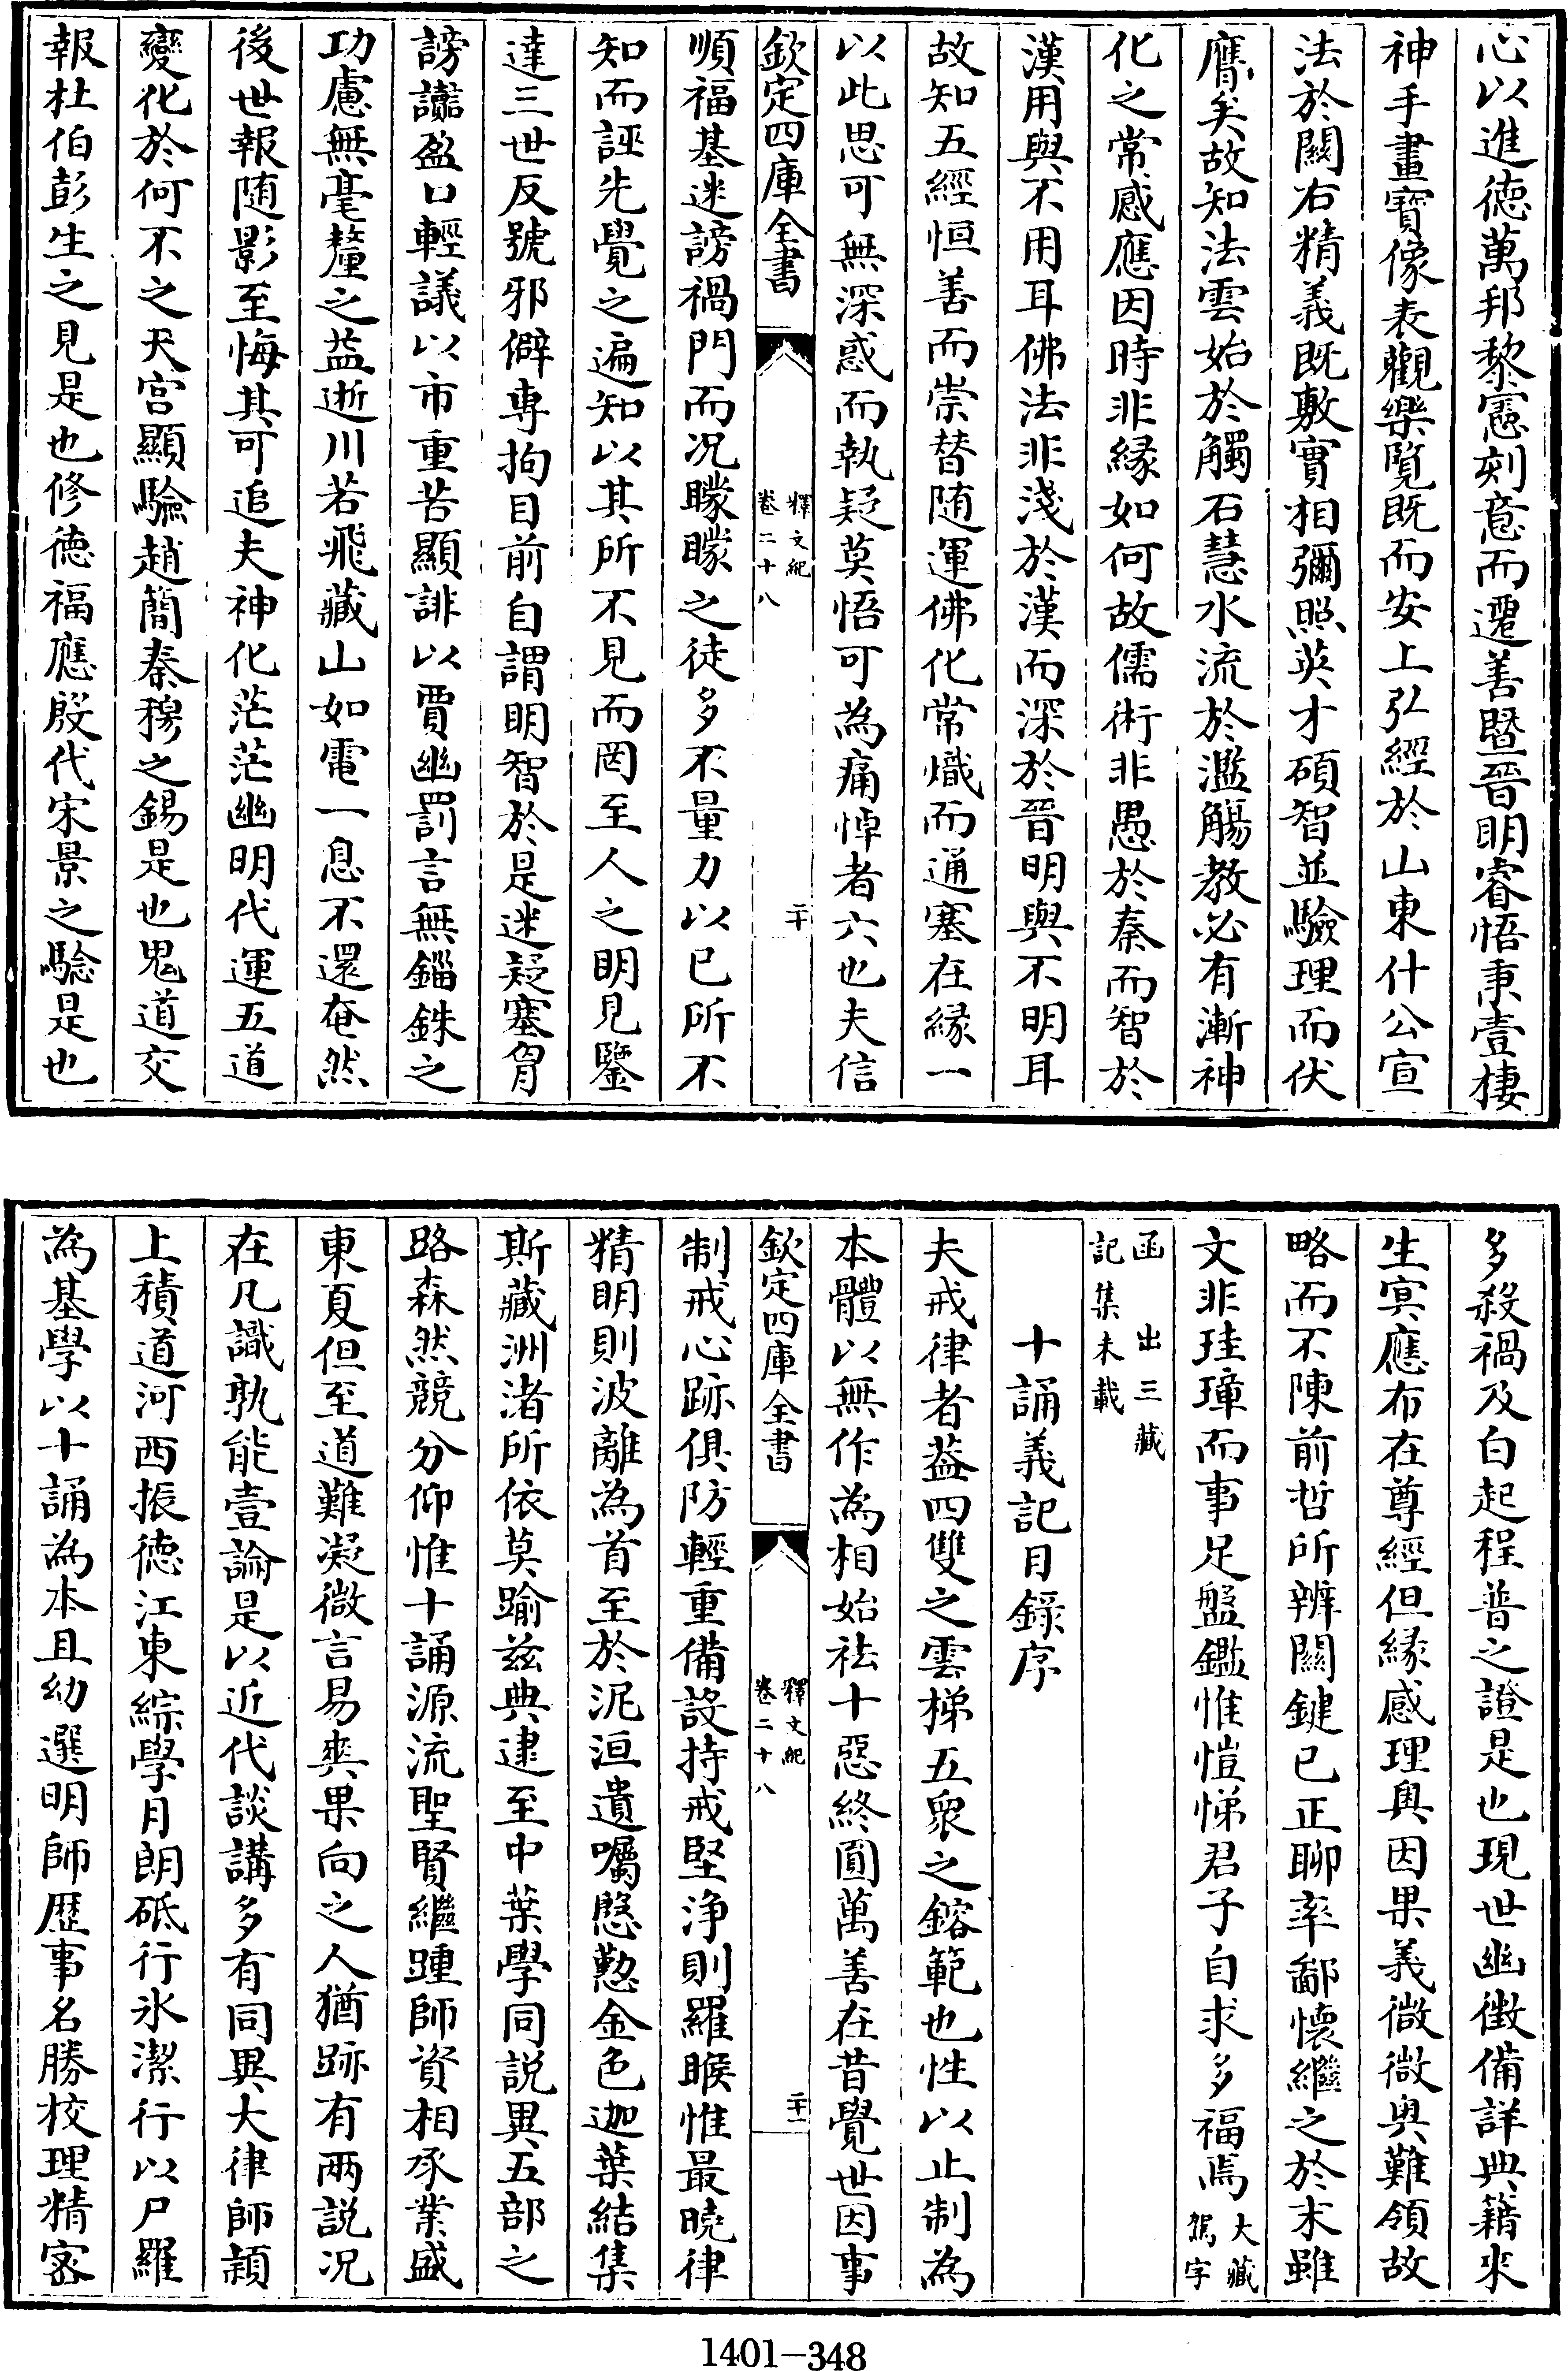 心以進徳萬邦黎憲刻意而遷善暨晉明睿悟秉壹棲
神手畫寳像表觀樂覽既而安上弘經於山東什公宣
法於關右精義既敷實相彌照英才碩智並驗理而伏
膺矣故知法雲始於觸石慧水流於濫觴教必有漸神
化之常感應因時非緣如何故儒術非愚於秦而智於
漢用與不用耳佛法非淺於漢而深於晉明與不明耳
故知五經恒善而崇替随運佛化常熾而通塞在緣一
以此思可無深惑而執疑莫悟可為痛悼者六也夫信
欽定四庫全書
釋文紀
卷二十八
二十
順福基迷謗禍門而况矇矇之徒多不量力以已所不
知而誣先覺之遍知以其所不見而罔至人之明見鑒
達三世反號邪僻專拘目前自謂明智於是迷疑塞胷
謗讟盈口輕議以市重苦顯誹以賈幽罰言無錙銖之
功慮無毫釐之益逝川若飛藏山如電一息不還奄然
後世報随影至悔其可追夫神化茫茫幽明代運五道
變化於何不之天宫顯驗趙簡秦穆之錫是也鬼道交
報杜伯彭生之見是也修徳福應殷代宋景之驗是也
多殺禍及白起程普之證是也現世幽徴備詳典籍來
生冥應布在尊經但緣感理奥因果義微微奥難領故
略而不陳前哲所辨關鍵已正聊率鄙懷繼之於末雖
文非珪璋而事足盤鑑惟愷悌君子自求多福焉
大藏
駕字
函 出三藏
記集未載
十誦義記目錄序
夫戒律者葢四雙之雲梯五衆之鎔範也性以止制為
本體以無作為相始祛十惡終圓萬善在昔覺世因事
欽定四庫全書
釋文紀
卷二十八
二十一
制戒心跡俱防輕重備設持戒堅浄則羅睺惟最曉律
精明則波離為首至於泥洹遺囑慇懃金色迦葉結集
斯藏洲渚所依莫踰兹典逮至中葉學同説異五部之
路森然競分仰惟十誦源流聖賢繼踵師資相承業盛
東夏但至道難凝微言易爽果向之人猶跡有兩説况
在凡識孰能壹論是以近代談講多有同異大律師頴
上積道河西振徳江東綜學月朗砥行氷潔行以尸羅
為基學以十誦為本且幼選明師歴事名勝校理精宻
1401-348